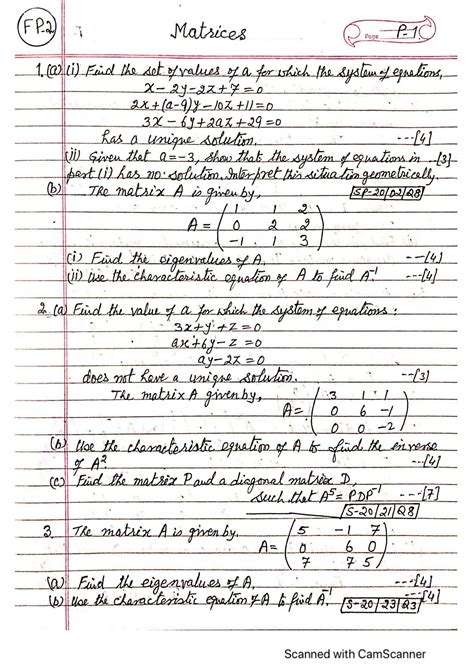 FP.2
Matrices
Page P-1
1.(a) (i) Find the set of values of a for which the system of equations,
x - 2y - 2z + 7 = 0
2x + (a-9)y - 10z + 11 = 0
3x - 6y + 2az + 29 = 0
has a unique solution. ---[4]
(ii) Given that a = -3, show that the system of equations in ---[3]
part (i) has no solution. Interpret this situation geometrically.
(b) The matrix A is given by, SP-20/02/Q8
1 1 2
A = 0 2 2
-1 1 3
(i) Find the eigenvalues of A. ---[4]
(ii) Use the characteristic equation of A to find A⁻¹ ---[4]
2.(a) Find the value of a for which the system of equations:
3x + y + z = 0
ax + 6y - z = 0
ay - 2z = 0
does not have a unique solution. ---[3]
The matrix A given by, 3 1 1
A = 0 6 -1
0 0 -2
(b) Use the characteristic equation of A to find the inverse
of A². ---[4]
(c) Find the matrix P and a diagonal matrix D,
such that A⁵ = PDP⁻¹ ---[7]
S-20/21/Q8
3. The matrix A is given by. 5 -1 7
A = 0 6 0
7 7 5
(a) Find the eigenvalues of A. ---[4]
(b) Use the characteristic equation of A to find A⁻¹. S-20/23/Q3 [4]
Scanned with CamScanner